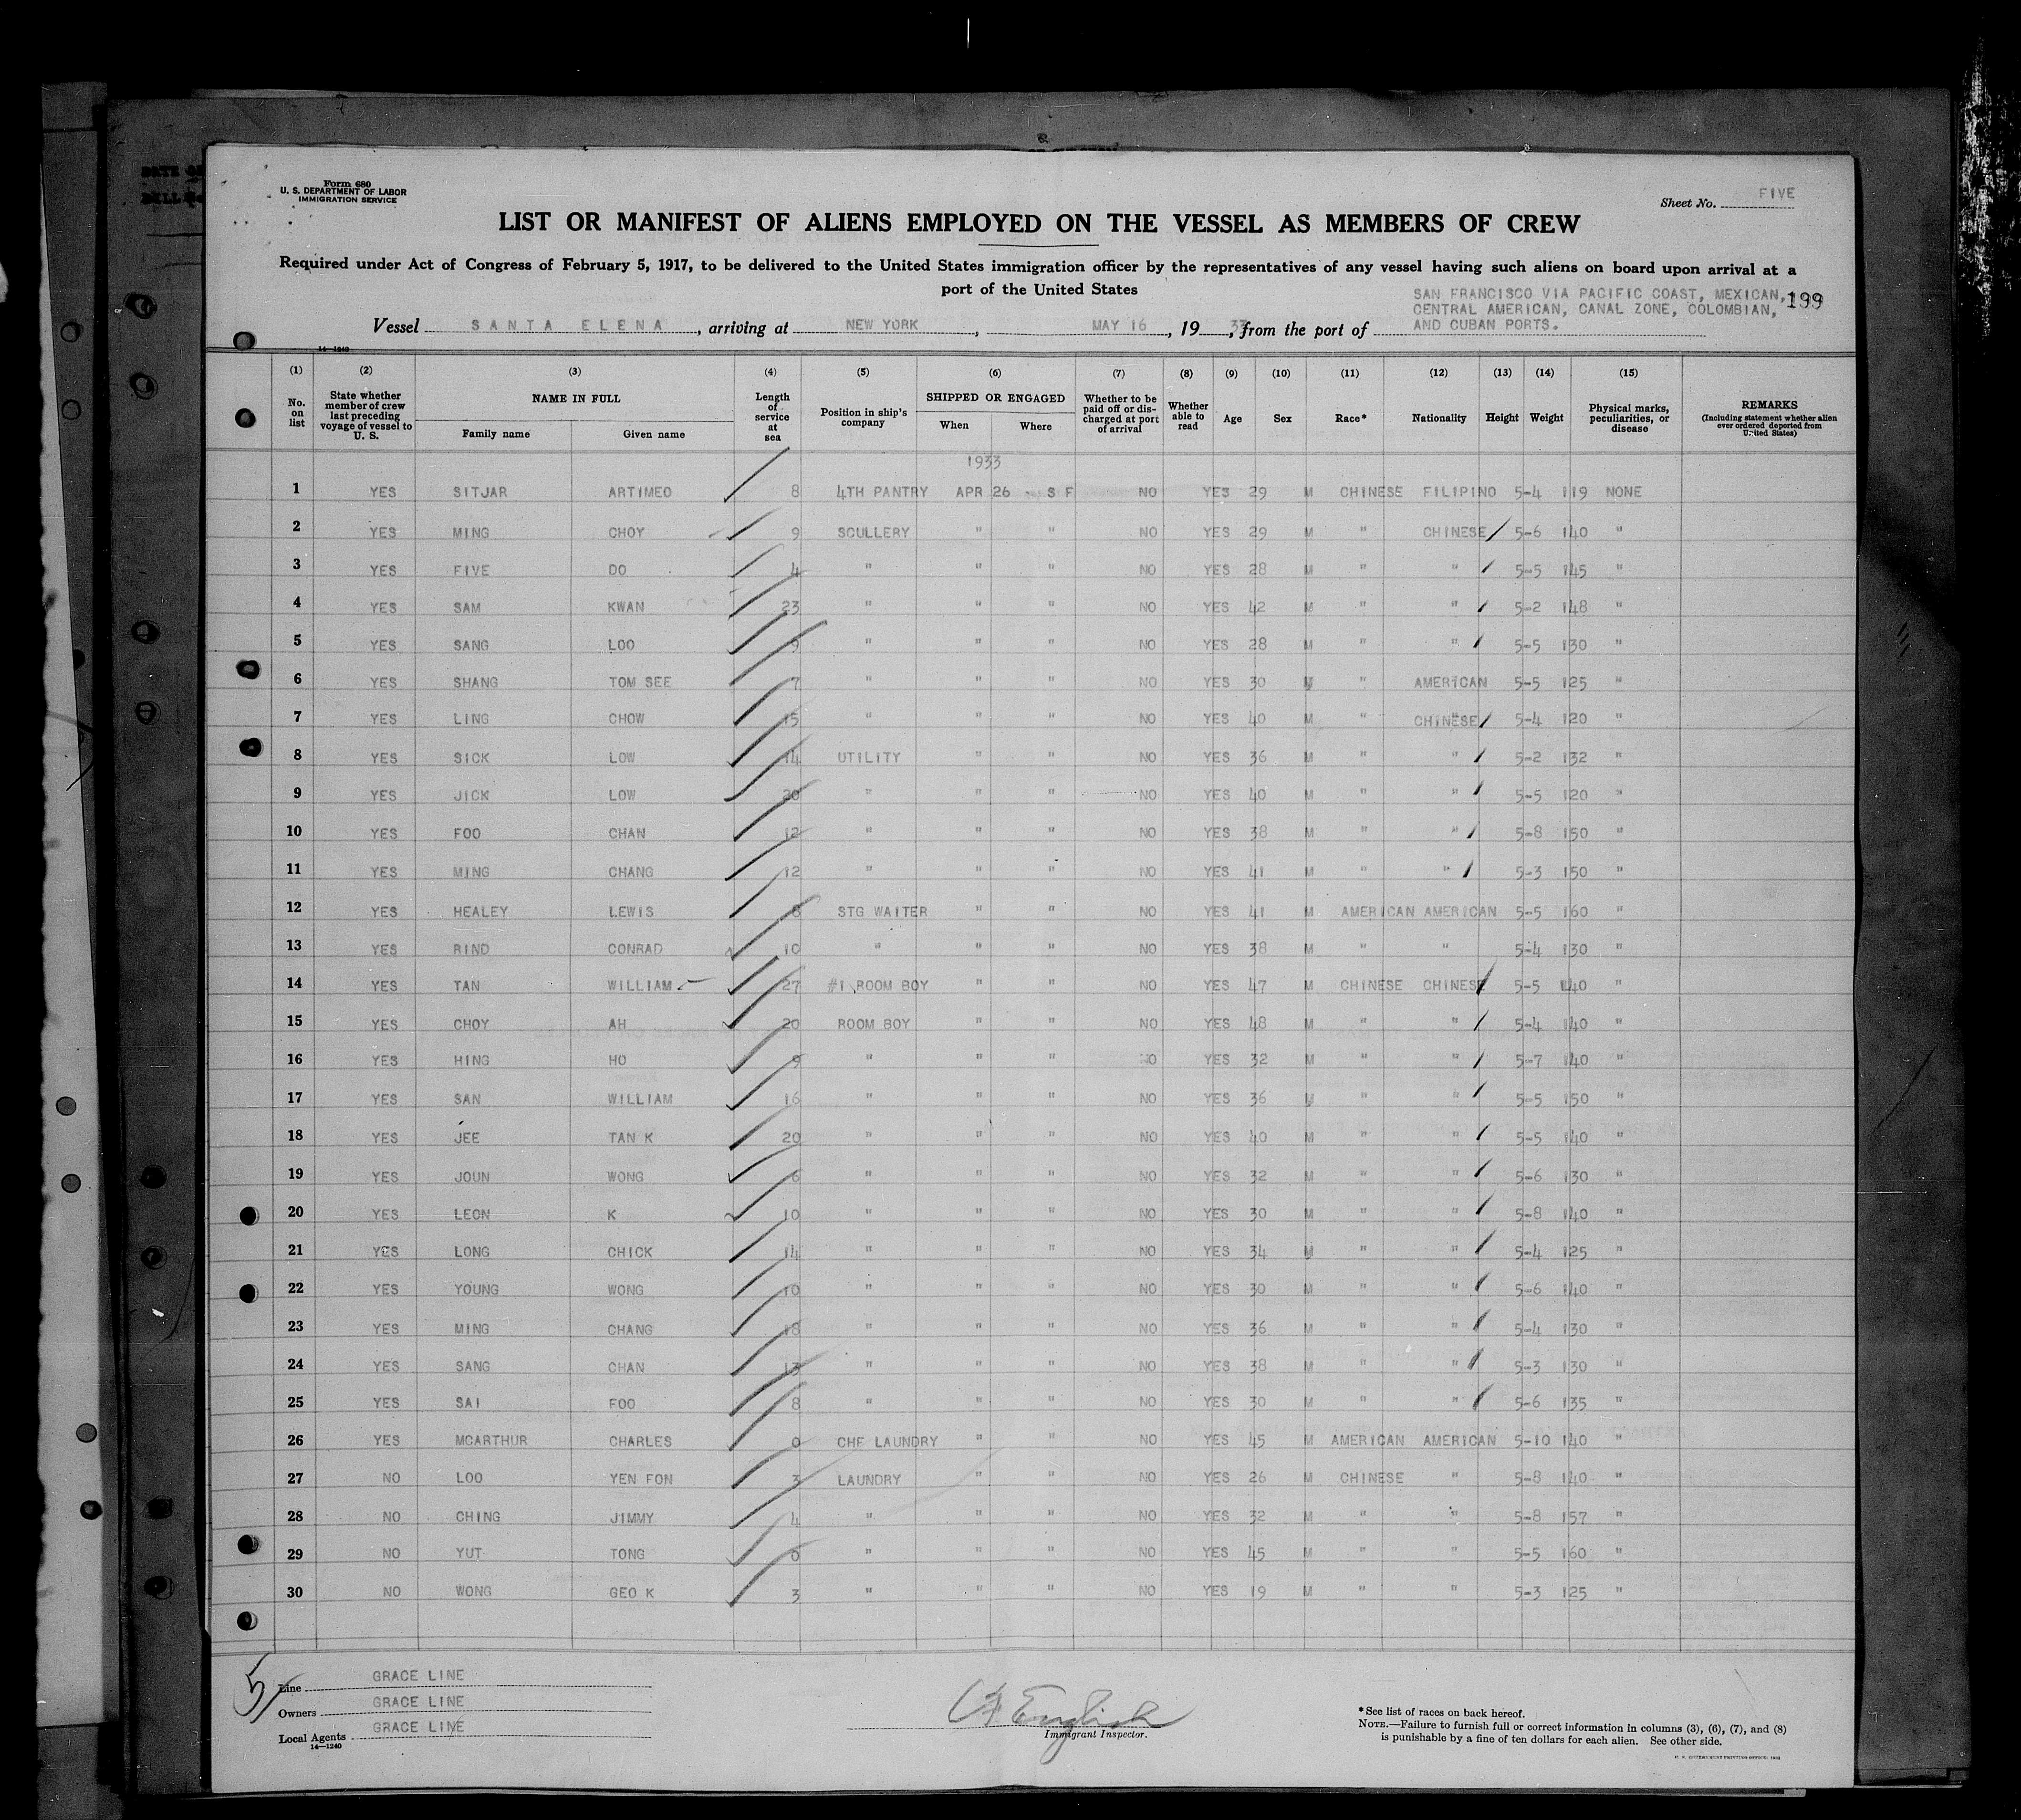 Form 680
U. S. DEPARTMENT OF LABOR
IMMIGRATION SERVICE
Sheet No. FIVE
LIST OR MANIFEST OF ALIENS EMPLOYED ON THE VESSEL AS MEMBERS OF CREW
Required under Act of Congress of February 5, 1917, to be delivered to the United States immigration officer by the representatives of any vessel having such aliens on board upon arrival at a
port of the United States
SAN FRANCISCO VIA PACIFIC COAST, MEXICAN, 199
CENTRAL AMERICAN, CANAL ZONE, COLOMBIAN,
Vessel SANTA ELENA, arriving at NEW YORK, MAY 16, 1933, from the port of AND CUBAN PORTS.
14—1240
(1) (2) (3) (4) (5) (6) (7) (8) (9) (10) (11) (12) (13) (14) (15)
No. on list
State whether member of crew last preceding voyage of vessel to U. S.
NAME IN FULL
Family name Given name
Length of service at sea
Position in ship's company
SHIPPED OR ENGAGED
When Where
Whether to be paid off or discharged at port of arrival
Whether able to read
Age Sex Race* Nationality Height Weight
Physical marks, peculiarities, or disease
REMARKS
(Including statement whether alien ever ordered deported from United States)
1933
1 YES SITJAR ARTIMEO 8 4TH PANTRY APR 26 - S F NO YES 29 M CHINESE FILIPINO 5-4 119 NONE
2 YES MING CHOY 9 SCULLERY " " NO YES 29 M " CHINESE 5-6 140 "
3 YES FIVE DO 4 " " " NO YES 28 M " " 5-5 145 "
4 YES SAM KWAN 23 " " " NO YES 42 M " " 5-2 148 "
5 YES SANG LOO 9 " " " NO YES 28 M " " 5-5 130 "
6 YES SHANG TOM SEE 7 " " " NO YES 30 M " AMERICAN 5-5 125 "
7 YES LING CHOW 15 " " " NO YES 40 M " CHINESE 5-4 120 "
8 YES SICK LOW 14 UTILITY " " NO YES 36 M " " 5-2 132 "
9 YES JICK LOW 20 " " " NO YES 40 M " " 5-5 120 "
10 YES FOO CHAN 12 " " " NO YES 38 M " " 5-8 150 "
11 YES MING CHANG 12 " " " NO YES 41 M " " 5-3 150 "
12 YES HEALEY LEWIS 8 STG WAITER " " NO YES 41 M AMERICAN AMERICAN 5-5 160 "
13 YES RIND CONRAD 10 " " " NO YES 38 M " " 5-4 130 "
14 YES TAN WILLIAM 27 #1 ROOM BOY " " NO YES 47 M CHINESE CHINESE 5-5 140 "
15 YES CHOY AH 20 ROOM BOY " " NO YES 48 M " " 5-4 140 "
16 YES HING HO 9 " " " NO YES 32 M " " 5-7 140 "
17 YES SAN WILLIAM 16 " " " NO YES 36 M " " 5-5 150 "
18 YES JEE TAN K 20 " " " NO YES 40 M " " 5-5 140 "
19 YES JOUN WONG 6 " " " NO YES 32 M " " 5-6 130 "
20 YES LEON K 10 " " " NO YES 30 M " " 5-8 140 "
21 YES LONG CHICK 14 " " " NO YES 34 M " " 5-4 125 "
22 YES YOUNG WONG 10 " " " NO YES 30 M " " 5-6 140 "
23 YES MING CHANG 18 " " " NO YES 36 M " " 5-4 130 "
24 YES SANG CHAN 13 " " " NO YES 38 M " " 5-3 130 "
25 YES SAI FOO 8 " " " NO YES 30 M " " 5-6 135 "
26 YES MCARTHUR CHARLES 0 CHF LAUNDRY " " NO YES 45 M AMERICAN AMERICAN 5-10 140 "
27 NO LOO YEN FON 3 LAUNDRY " " NO YES 26 M CHINESE " 5-8 140 "
28 NO CHING JIMMY 4 " " " NO YES 32 M " " 5-8 157 "
29 NO YUT TONG 0 " " " NO YES 45 M " " 5-5 160 "
30 NO WONG GEO K 3 " " " NO YES 19 M " " 5-3 125 "
Line GRACE LINE
Owners GRACE LINE
Local Agents GRACE LINE
14—1240
English
Immigrant Inspector.
*See list of races on back hereof.
NOTE.—Failure to furnish full or correct information in columns (3), (6), (7), and (8)
is punishable by a fine of ten dollars for each alien. See other side.